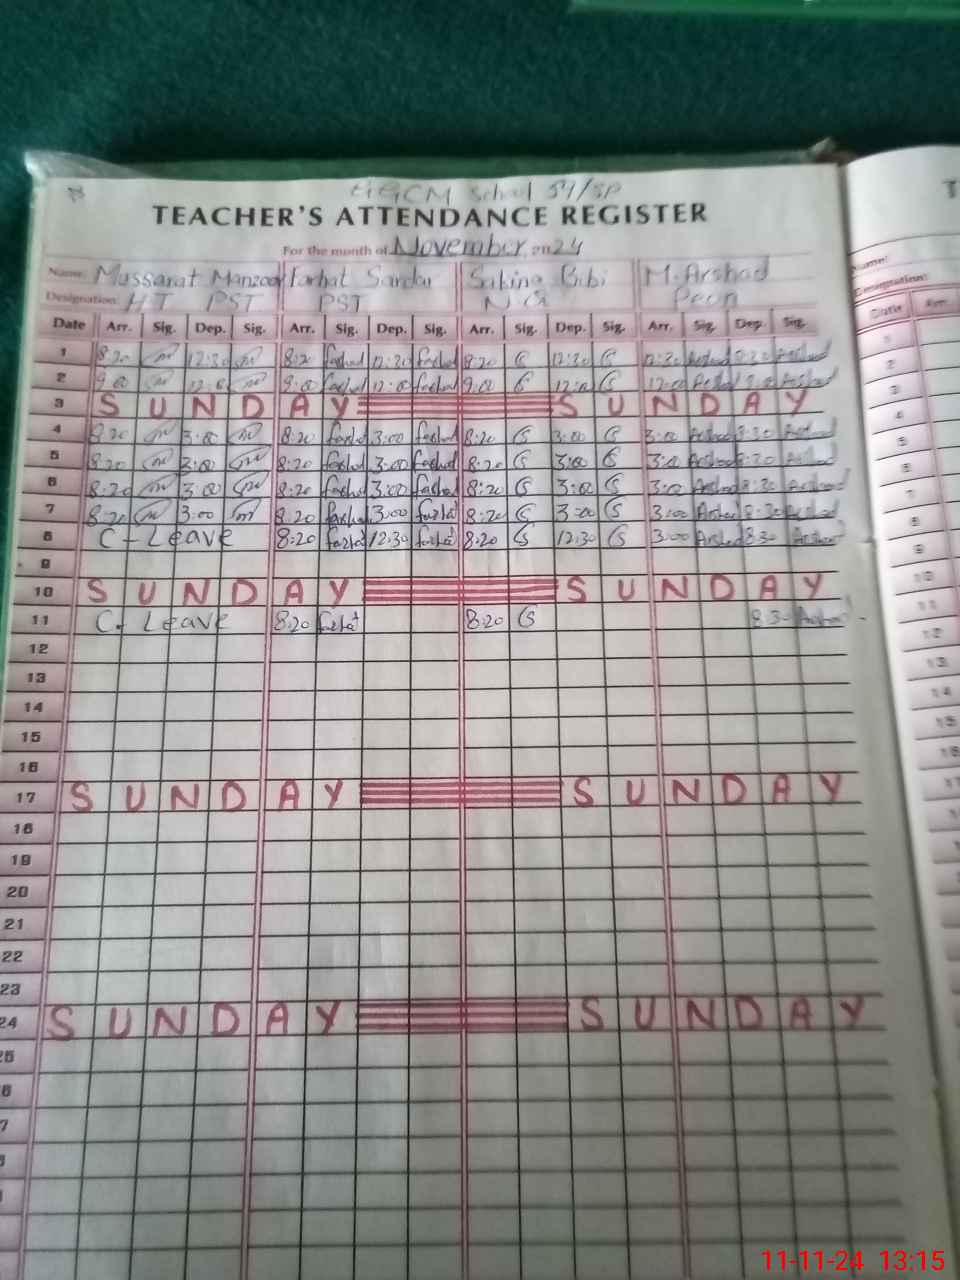 GGCM School 54/SP
TEACHER'S ATTENDANCE REGISTER
For the month of November 2024
Name: Mussarat Manzoor Farhat Sardar Sakina Bibi M. Arshad
Designation: HT PST PST Peon
Date Arr. Sig. Dep. Sig. Arr. Sig. Dep. Sig. Arr. Sig. Dep. Sig. Arr. Sig. Dep. Sig.
1 8:20 12:30 8:20 12:30 8:20 12:30 12:30 Arshad 8:30 Arshad
2 9:00 12:00 9:00 12:00 9:00 12:00 12:00 Arshad 9:00 Arshad
3 S U N D A Y S U N D A Y
4 8:20 3:00 8:20 3:00 8:20 3:00 3:00 Arshad 8:30 Arshad
5 8:20 3:00 8:20 3:00 8:20 3:00 3:00 Arshad 8:30 Arshad
6 8:20 3:00 8:20 3:00 8:20 3:00 3:00 Arshad 8:30 Arshad
7 8:20 3:00 8:20 3:00 8:20 3:00 3:00 Arshad 8:30 Arshad
8 C-Leave 8:20 12:30 8:20 12:30 3:00 Arshad 8:30 Arshad
9
10 S U N D A Y S U N D A Y
11 C-Leave 8:20 8:20 8:30 Arshad
12
13
14
15
16
17 S U N D A Y S U N D A Y
18
19
20
21
22
23
24 S U N D A Y S U N D A Y
Name:
Designation:
Date Arr.
1
2
3
4
5
6
7
8
9
10
11
12
13
14
15
16
11-11-24 13:15